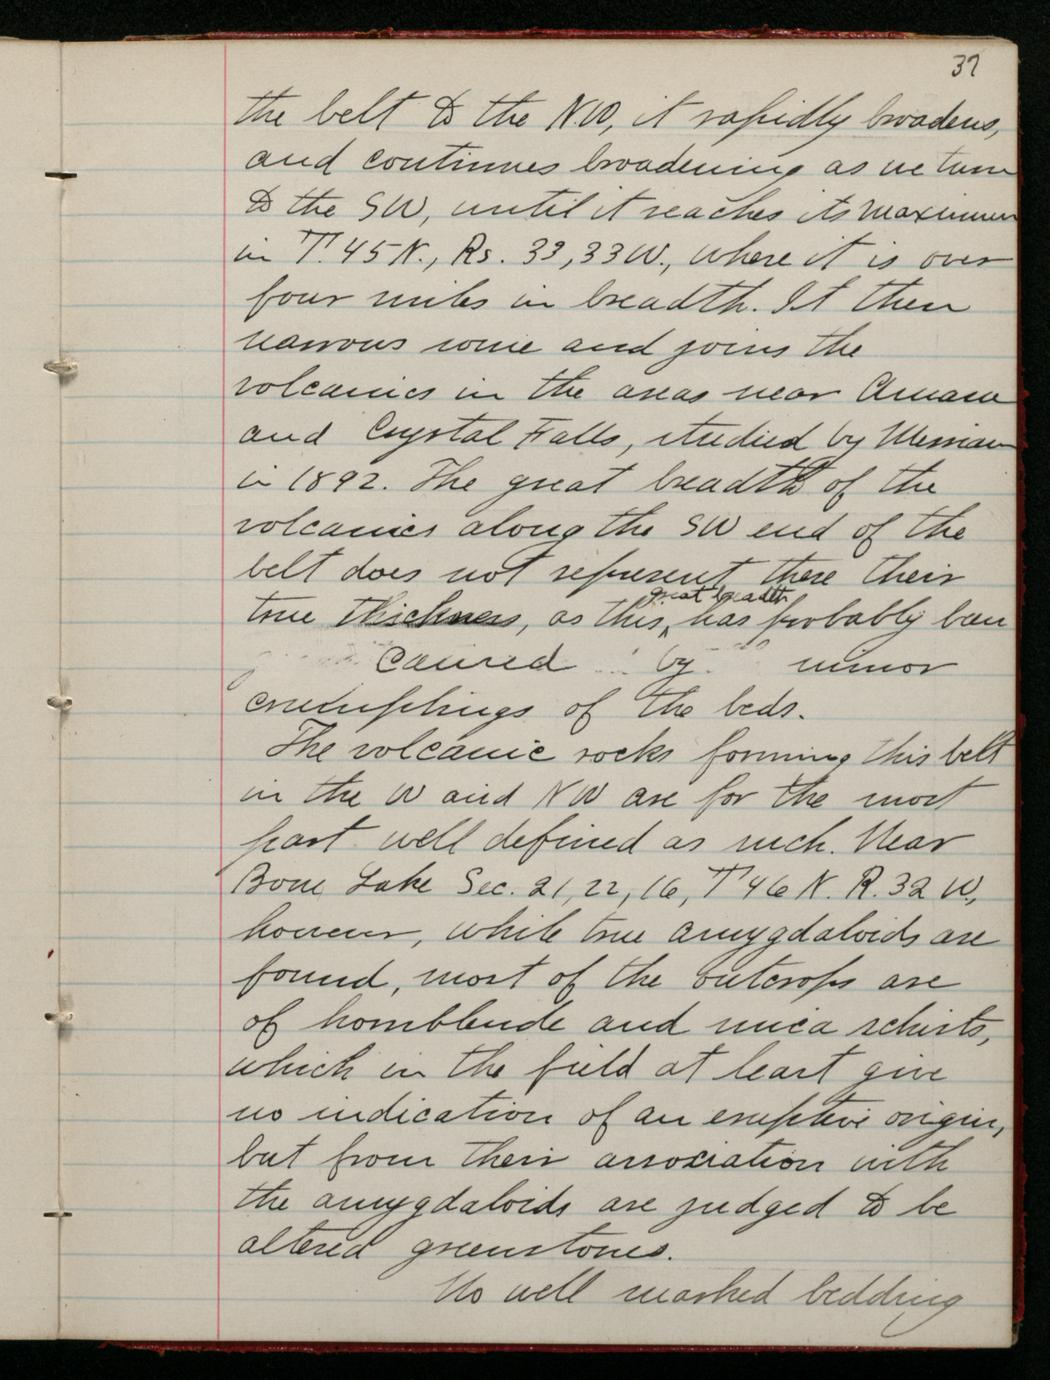 37
the belt to the N.W, it rapidly broadens,
and continues broadening as we turn
to the SW, until it reaches its maximum
in T. 45 N., Rs. 33, 33 W., where it is over
four miles in breadth. It then
narrows some and joins the
volcanics in the areas near Amasa
and Crystal Falls, studied by Merriam
in 1892. The great breadth of the
volcanics along the SW end of the
belt does not represent there their
great breadth
true thickness, as this, has probably been
caused by minor
crumplings of the beds.
The volcanic rocks forming this belt
in the W and NW are for the most
part well defined as such. Near
Bone Lake Sec. 21, 22, 16, T 46 N. R. 32 W,
however, while true amygdaloids are
found, most of the outcrops are
of hornblende and mica schists,
which in the field at least give
no indication of an eruptive origin,
but from their association with
the amygdaloids are judged to be
altered greenstones.
No well marked bedding